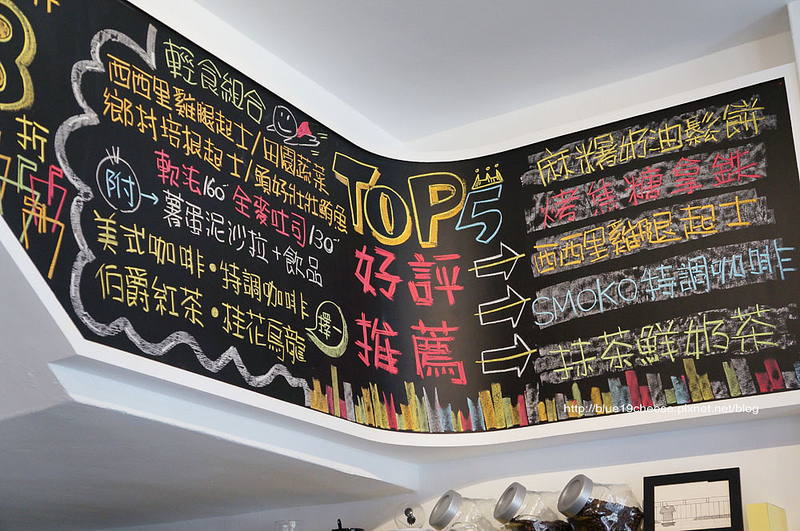 折
輕食組合
西西里雞腿起士/田園蔬菜
鄉村培根起士/鮪好壯壯鮪魚
軟法160 全麥吐司130
附→薯蛋泥沙拉+飲品
美式咖啡·特調咖啡
伯爵紅茶·桂花烏龍
擇一
TOP5
好評
推薦
麻糬奶油鬆餅
烤焦糖拿鐵
西西里雞腿起士
SMOKO特調咖啡
抹茶鮮奶茶
http://blue19cheese.pixnet.net/blog